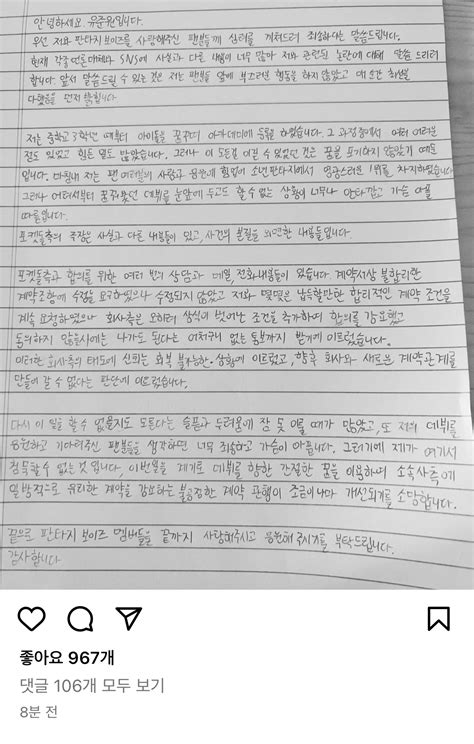 안녕하세요 유준원입니다.
우선 저와 판타지보이즈를 사랑해주신 팬분들께 심려를 끼쳐드려 죄송하다는 말씀드립니다.
현재 각종언론매체와 SNS에 사실과 다른 내용이 너무 많아 저와 관련된 논란에 대해 말씀 드리려
합니다. 앞서 말씀드릴 수 있는것은 저는 팬분들 앞에 부끄러운 행동을 하지 않았고 매 순간 최선을
다했음을 먼저 밝힙니다.
저는 중학교 3학년 때부터 아이돌을 꿈꾸며 아카데미에 등록을 하였습니다. 그 과정중에서 여러 어려운
일도 있었고 힘든 일도 많았습니다. 그러나 이 모든걸 이길 수 있었던 것은 꿈을 포기하지 않았기 때문
입니다. 마침내 저는 팬 여러분의 사랑과 응원에 힘입어 소년판타지에서 영광스러운 1위를 차지하였습니다
그러나 어려서부터 꿈꿔왔던 데뷔를 눈앞에 두고도 할 수 없는 상황이 너무나 안타깝고 가슴 아플
따름입니다.
포켓돌측의 주장은 사실과 다른 내용들이 있고, 사건의 본질을 외면한 내용들입니다.
포켓돌측과 합의를 위한 여러 번의 상담과 메일, 전화내용들이 있습니다. 계약서상 불합리한
계약조항에 수정을 요구하였으나 수정되지 않았고 저와 몇몇은 납득할만한 합리적인 계약 조건을
계속 요청하였으나 회사측은 오히려 상식이 벗어난 조건을 추가하며 합의를 강요했고
동의하지 않을시에는 나가도 된다는 어처구니 없는 통보까지 받게게 이르렀습니다.
이러한 회사측의 태도에 신뢰는 회복 불가능한 상황에 이르렀고, 향후 회사와 새로운 계약관계를
만들어 갈 수 없다는 판단에 이르렀습니다.
다시 이 일을 할 수 없을지도 모른다는 슬픔과 두려움에 잠 못 이룰 때가 많았고, 또 저의 데뷔를
응원하고 기다려주신 팬분들을 생각하면 너무 죄송하고 가슴이 아픕니다. 그러기에 제가 여기서
침묵할 수 없는 것 입니다. 이번일을 계기로 데뷔를 향한 간절한 꿈을 이용하여 소속사측에
일방적으로 유리한 계약을 강요하는 불공정한 계약 관행이 조금이나마 개선되기를 소망합니다.
끝으로 판타지 보이즈 멤버들을 끝까지 사랑해주시고 응원해 주시기를 부탁드립니다.
감사합니다
좋아요 967개
댓글 106개 모두 보기
8분 전